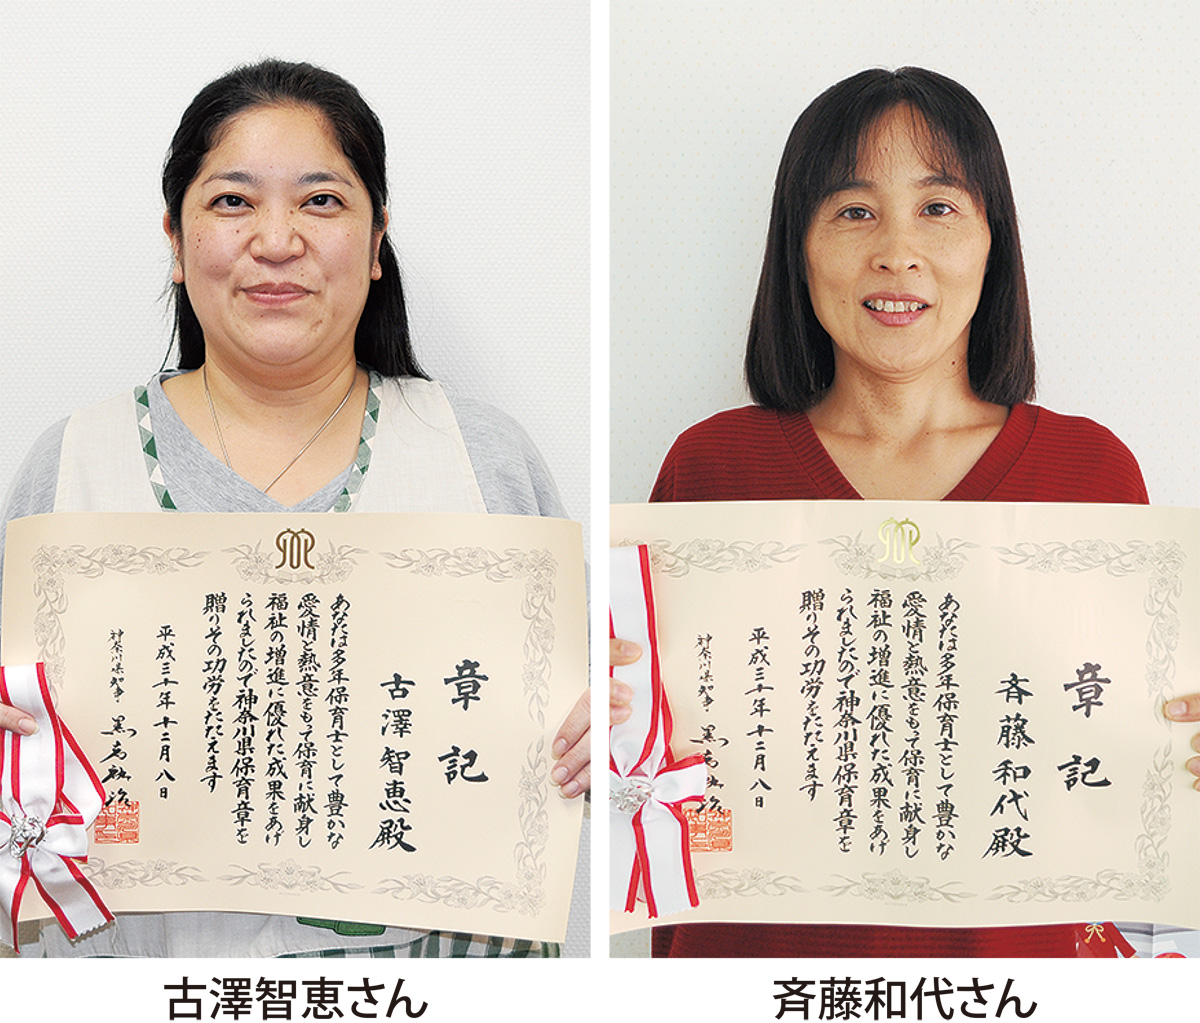 章記
古澤智恵殿
あなたは多年保育士として豊かな
愛情と熱意をもって保育に献身し
福祉の増進に優れた成果をあげ
られましたので神奈川県保育章を
贈りその功労をたたえます
平成三十年十二月八日
神奈川県知事 黒岩祐治
古澤智恵さん
章記
斉藤和代殿
あなたは多年保育士として豊かな
愛情と熱意をもって保育に献身し
福祉の増進に優れた成果をあげ
られましたので神奈川県保育章を
贈りその功労をたたえます
平成三十年十二月八日
神奈川県知事 黒岩祐治
斉藤和代さん